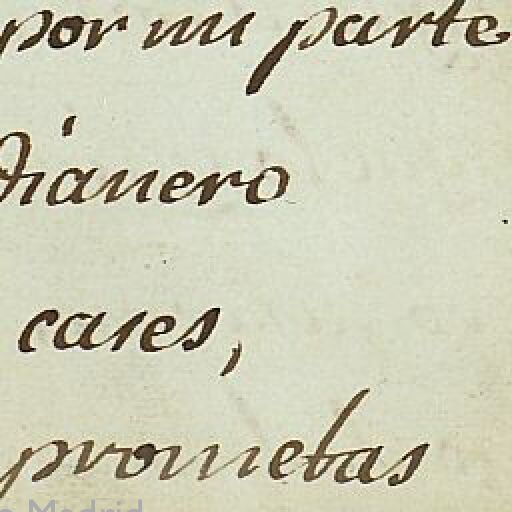 por mi parte
dianero
cases,
prometas
Madrid